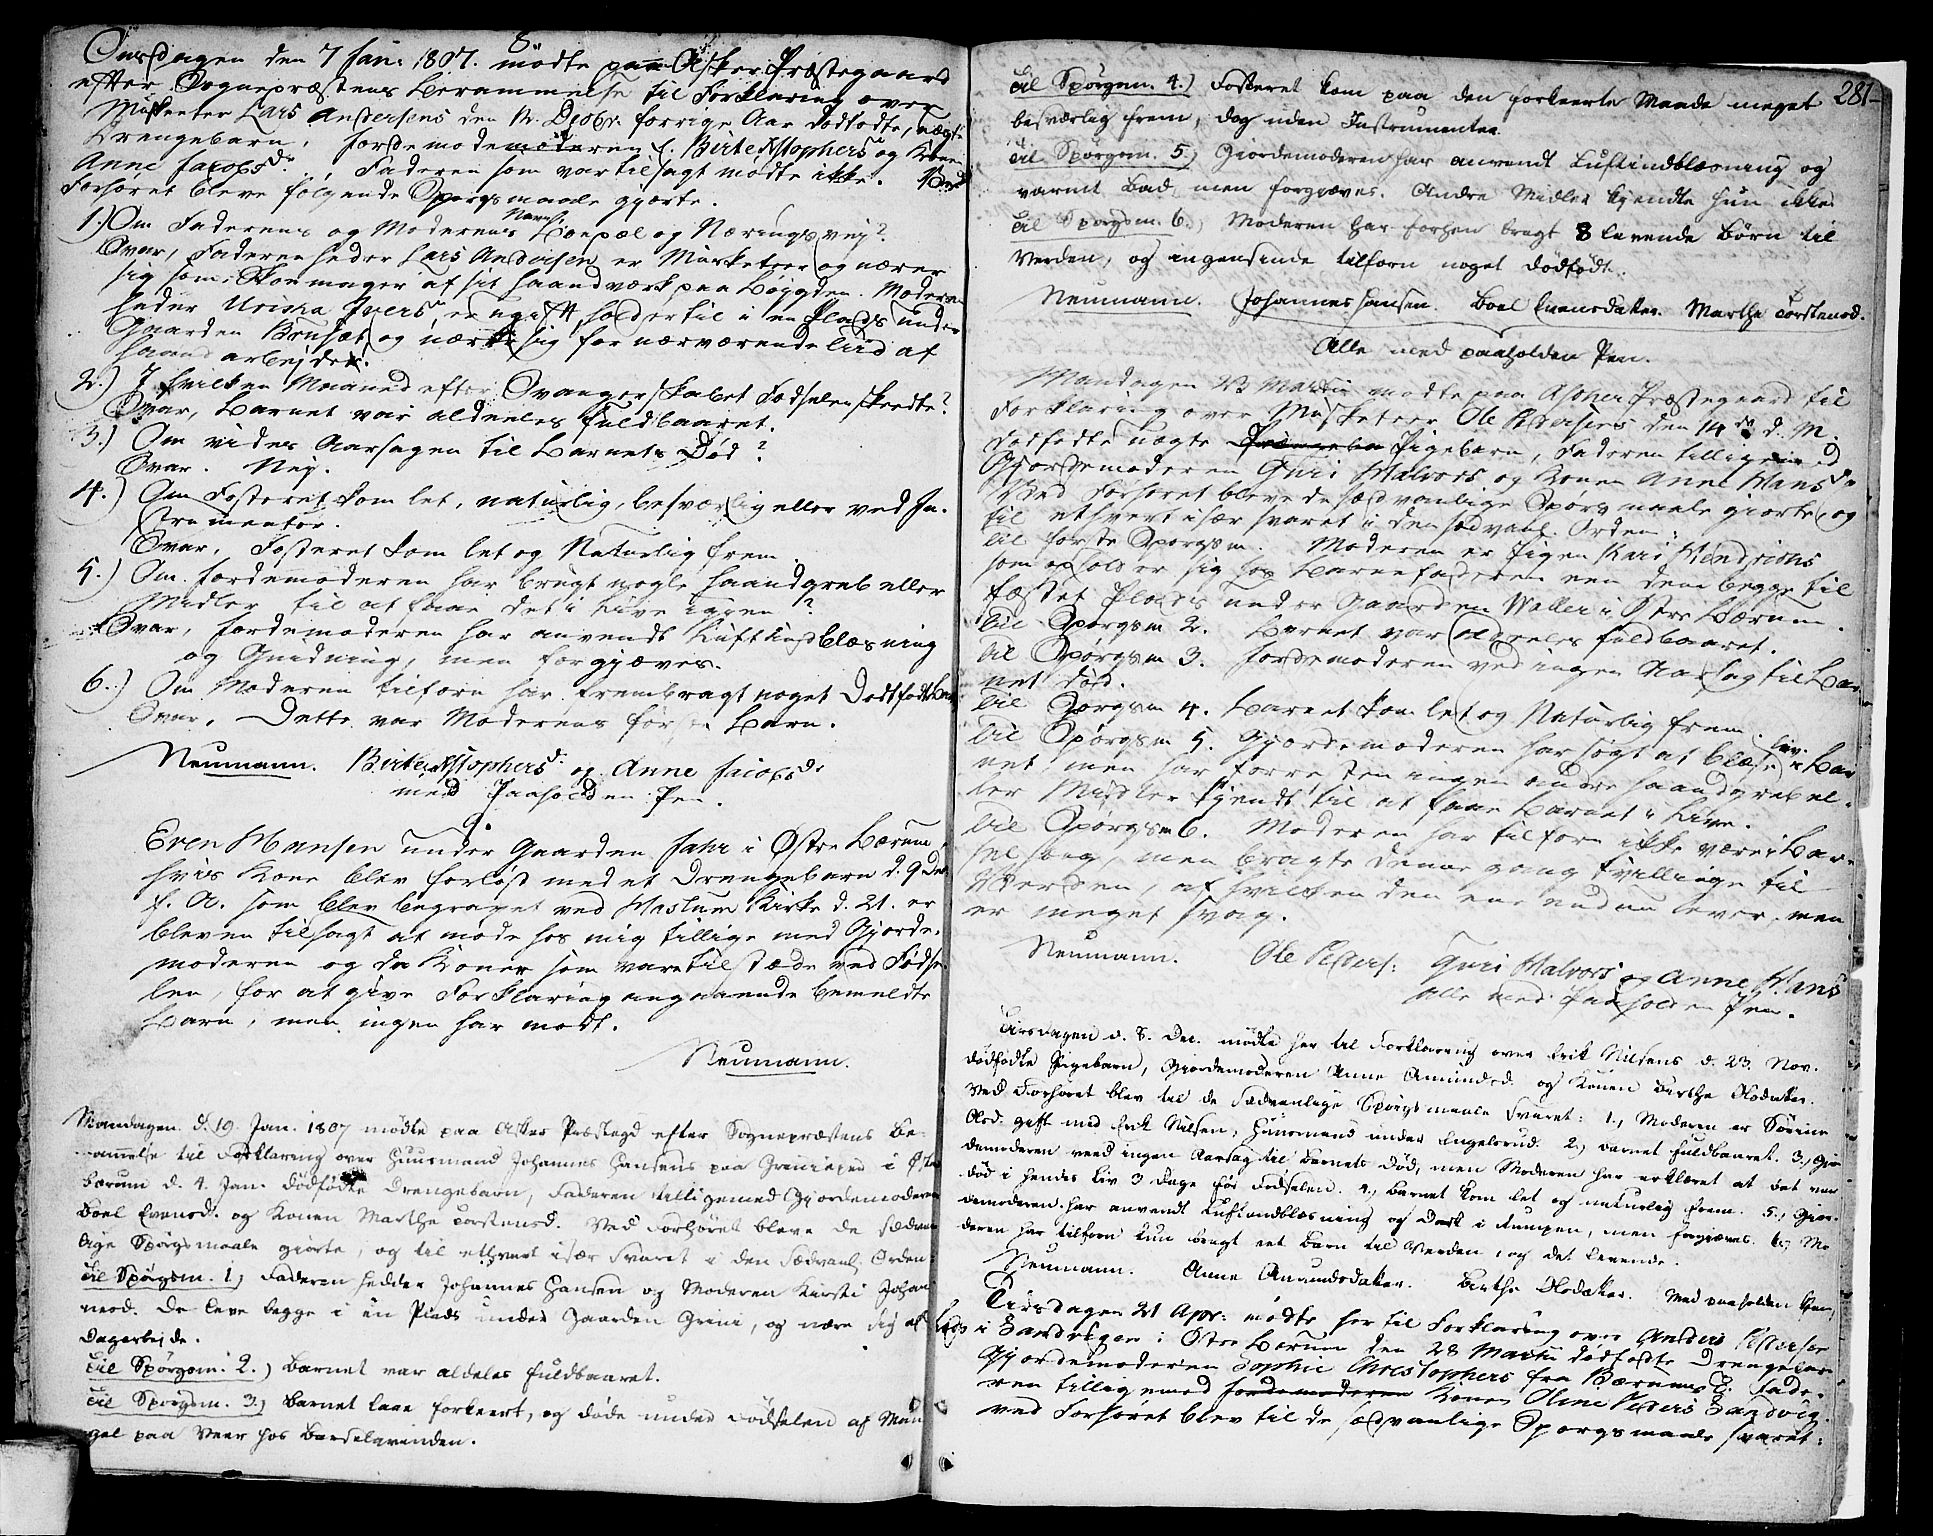 8.
Onsdagen den 7 Jan: 1807. mödte paa Asker Præstegaard
efter Sognepræstens Berammelse til Forklaring over
Musqueter Lars Andersens den 12. Decbr. forrige Aar dödfödte, uægte
Drengebarn, Jordemoderen f. Birte Xstophersd. og Konen
Anne Jacobsdr., Faderen som var tilsagt mödte ikke. Ved
Forhöret bleve fölgende Spörgsmaale gjorte.
1.) Om Faderens og Moderens Navn, Boepæl og Næringsvej?
Svar, Faderen heder Lars Andersen er Musketeer og nærer
sig som Skoemager af sit Haandværk paa Bøygden. Moderen
heder Ursina Ivers, er ugift, holder til i en Plads under
Gaarden Brusæt og nærer sig for nærværende Tiid af
Haandarbejder.
2.) I hvilken Maaned efter Svangerskabet Födselen skeedte?
Svar, Barnet var aldeeles fuldbaaret.
3.) Om vides Aarsagen til Barnets Död?
Svar. Nej.
4.) Om Fosteret kom let, naturlig, besværlig eller ved In-
strumenter.
Svar, Fosteret kom let og Naturlig frem.
5.) Om Jordemoderen har brugt nogle Haandgreb eller
Midler til at faae det i Live igjen?
Svar, Jordemoderen har anvendt Luftindblæsning
og Gnidning, men forgjæves.
6.) Om Moderen tilforn har frembragt noget Dödfödt Barn
Svar, Dette var Moderens förste Barn.
Neumann. Birte Xstophersd. og Anne Jacobsdr
med Paaholden Pen.
9.
Even Hansen under Gaarden Jahr i Østre Bærum,
hvis Kone blev forlöst med et Drengebarn d. 9 Dec.
f. A. som blev begravet ved Haslum Kirke d. 21. er
bleven tilsagt at möde hos mig tillige med Gjorde-
moderen og de Koner som vare tilstæde ved Födse-
len, for at give Forklaring angaaende bemeldte
Barn, men ingen har mödt.
Neumann.
Mandagen d. 19 Jan. 1807 mödte paa Asker Præstegd efter Sognepræstens Be-
rammelse til Forklaring over Huusmand Johannes Hansens paa Grini i Østre
Bærum d. 4. Jan. dödfödte Drengebarn, Faderen tilligemed Gjordemoderen
Boel Evensd. og Konen Marthe Torstensd. Ved Forhöret bleve de sædvan-
lige Spörgsmaale giorte, og til ethvert især svaret i den sædvanl. Orden.
Til Spörgsm. 1.) Faderen hedder Johannes Hansen og Moderen Kirsti Johan-
nesd. De leve begge i en Plads under Gaarden Grini, og nære sig af
Dagarbejde.
Til Spörgsm. 2.) Barnet var aldeles fuldbaaret.
Til Spörgsm. 3.) Barnet laae forkeert, og döde under Födselen af Man-
gel paa Veer hos Barselqvinden.
281
Til Spörgsm. 4.) Fosteret kom paa den forkeerte Maade meget
besværlig frem, dog uden Instrumenter.
Til Spörgsm. 5.) Giordemoderen har anvendt Luftindblæsning og
varmt Bad, men forgjæves. Andre Midler kjendte hun ikke.
Til Spörgsm. 6.) Moderen har forhen bragt 8 levende Börn til
Verden, og ingensinde tilforn noget dödfödt.
Neumann. Johannes Hansen. Boel Evensdatter. Marthe Torstensd.
Alle med paaholden Pen.
Mandagen 23 Martii mödte paa Asker Præstegaard til
Forklaring over Musketeer Ole Pedersens den 14de d. M.
dödfödte uægte Pigebarn, Faderen tilligemed
Gjordemoderen Guri Halvors og Konen Anne Hansdr
Ved Forhöret bleve de sædvanlige Spörgsmaale giorte, og
til ethvert især svaret i den sædvanl. Orden:
Til förste Spörgsm. Moderen er Pigen Kari Hendrichs
som opholder sig hos Barnefaderen paa dem begge til
fæstet Plads under Gaarden Waller i Østre Bærum.
Til Spörgsm 2. Barnet var aldeeles fuldbaaret.
Til Spörgsm 3. Jordemoderen ved ingen Aarsag til Bar-
nets Död.
Til Spörgsm 4. Barnet kom let og Naturlig frem.
Til Spörgsm 5. Gjordemoderen har sögt at blæse Liv i Bar-
net, men har forresten ingen andre Haandgreb el-
ler Midler kjendt til at faae Barnet i Live.
Til Spörgsm 6. Moderen har tilforn ikke været i Bar-
selseng, men bragte denne gang Tvillinge til
Verden, af hvilken den ene endnu lever, men
er meget svag.
Neumann. Ole Peders: Guri Halvors og Anne Hans
alle med Paaholden Pen.
Tirsdagen d. 8. Dec. mödte her til Forklaring over Erik Nilsens d. 23. Nov.
dödfödte Pigebarn, Giordemoderen Anne Amundsd. og Konen Birthe Olsdatter.
Ved Forhöret blev til de sædvanlige Spörgsmaale svaret: 1., Moderen er Sörine
Olsd. gift med Erik Nilsen, Huusmand under Engelsrud. 2., Barnet fuldbaaret. 3., Gior-
demoderen veed ingen Aarsag til Barnets Död, men Moderen har erklæret at det var
död i hendes Liv 3 Dage för Födselen. 4., Barnet kom let og naturlig frem. 5., Gior-
demoderen har anvendt Luftindblæsning og Dask i Rumpen, men forgjæves. 6., Mo-
deren har tilforn kun bragt eet Barn til Verden, og det levende.
Neumann. Anne Amundsdatter. Birthe Olsdatter. Med paaholden Pen.
Tirsdagen 21 Apr: mödte her til Forklaring over Anders Pedersens
i Sandvigen i Østre Bærum den 28 Martii dödfödte Drengebarn
Gjordemoderen Sophie Christophers fra Bærums V. Fade-
ren tilligemed Jordemoderen Konen Oline Peders Sandvig.
ved Forhöret blev til de sædvanlige Spörgsmaale svaret: